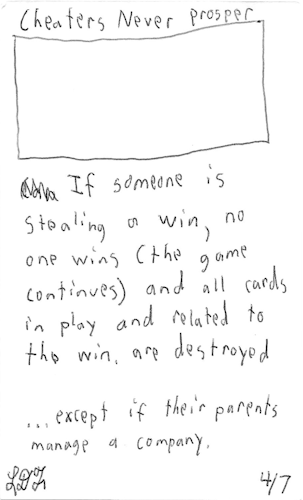 Cheaters Never prosper
If someone is
stealing a win, no
one wins (the game
continues) and all cards
in play and related to
the win, are destroyed
...except if their parents
manage a company.
4/7